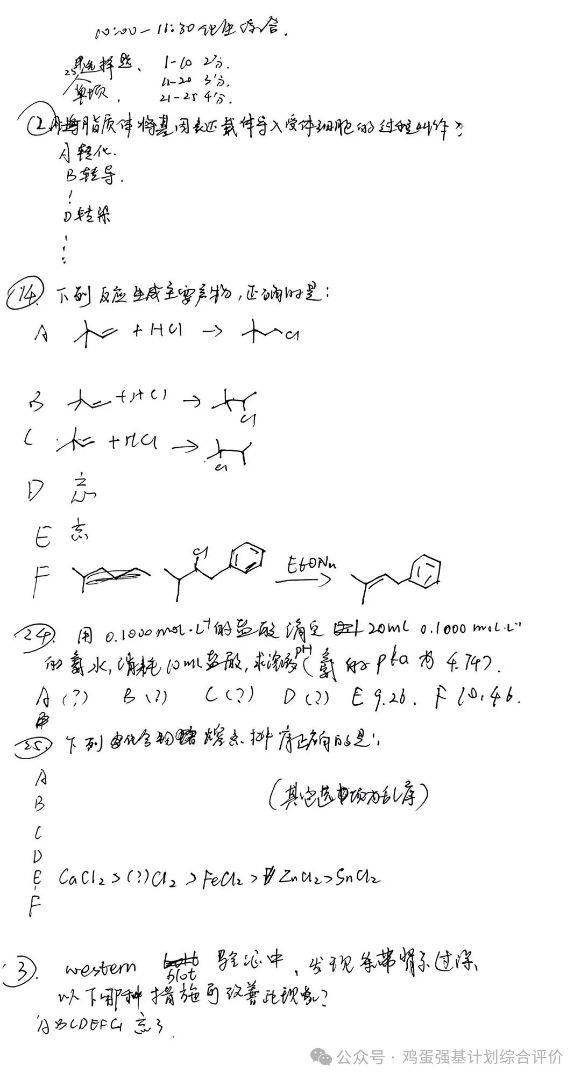 10:00-11:30 化生综合.
25个 单选择题、 1-10 2分.
单项, 11-20 3分.
21-25 4分.
② 用脂质体将基因表达载体导入受体细胞的过程叫作?
A 转化.
B 转导.
D 转染
⑭ 下列反应生成主要产物,正确的是:
A + HCl →
Cl
B + HCl →
Cl
C + HCl →
Cl
D 忘
E 忘
F Cl EtONa
24. 用 0.1000 mol·L⁻¹的盐酸滴定 20ml 0.1000 mol·L⁻¹
的氨水,消耗10ml盐酸,求溶液pH(氨的pka为4.74).
A (?) B (?) C (?) D (?) E 9.26. F 10.46.
25. 下列化合物熔点排序正确的是:
A
B (其它选项为乱序)
C
D
E CaCl2 > (?)Cl2 > FeCl2 > ZnCl2 > SnCl2
F
3. western blot 验证中,发现条带显示过深,
以下哪种措施可改善此现象?
ABCDEFG 忘了.
公众号·鸡蛋强基计划综合评价